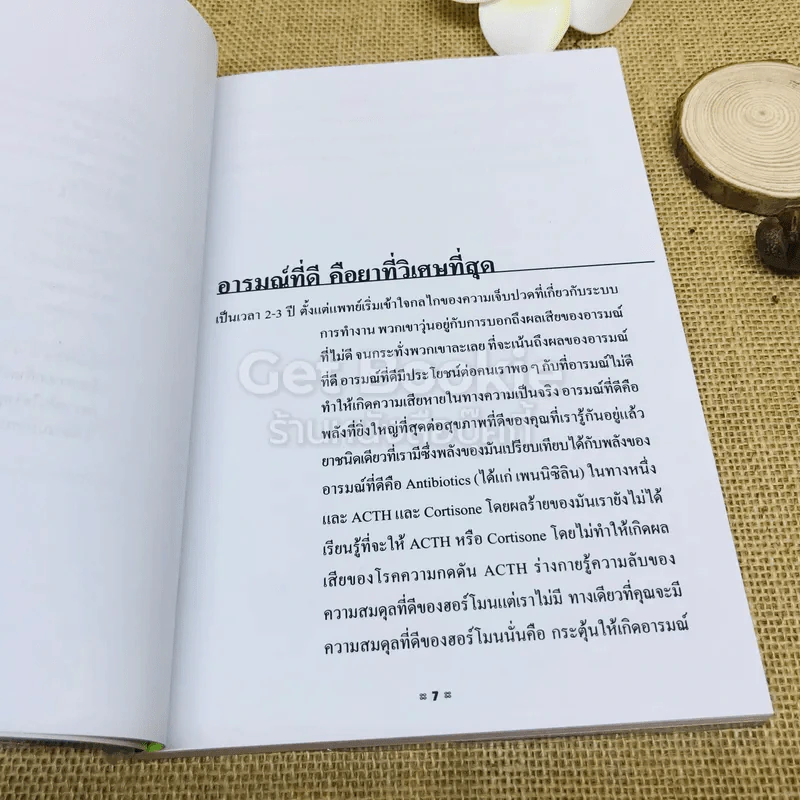 อารมณ์ที่ดี คือยาที่วิเศษที่สุด
เป็นเวลา 2-3 ปี ตั้งแต่แพทย์เริ่มเข้าใจกลไกของความเจ็บปวดที่เกี่ยวกับระบบ
การทำงาน พวกเขาวุ่นอยู่กับการบอกถึงผลเสียของอารมณ์
ที่ไม่ดี จนกระทั่งพวกเขาละเลย ที่จะเน้นถึงผลของอารมณ์
ที่ดี อารมณ์ที่ดีมีประโยชน์ต่อคนเราพอ ๆ กับที่อารมณ์ไม่ดี
ทำให้เกิดความเสียหายในทางความเป็นจริง อารมณ์ที่ดีคือ
พลังที่ยิ่งใหญ่ที่สุดต่อสุขภาพที่ดีของคุณที่เรารู้กันอยู่แล้ว
ยาชนิดเดียวที่เรามีซึ่งพลังของมันเปรียบเทียบได้กับพลังของ
อารมณ์ที่ดีคือ Antibiotics (ได้แก่ เพนนิซิลิน) ในทางหนึ่ง
และ ACTH และ Cortisone โดยผลร้ายของมันเรายังไม่ได้
เรียนรู้ที่จะให้ ACTH หรือ Cortisone โดยไม่ทำให้เกิดผล
เสียของโรคความกดดัน ACTH ร่างกายรู้ความลับของ
ความสมดุลที่ดีของฮอร์โมนแต่เราไม่มี ทางเดียวที่คุณจะมี
ความสมดุลที่ดีของฮอร์โมนนั่นคือ กระตุ้นให้เกิดอารมณ์
7
Get Bookie
ร้านหนังสือบุ๊คกี้